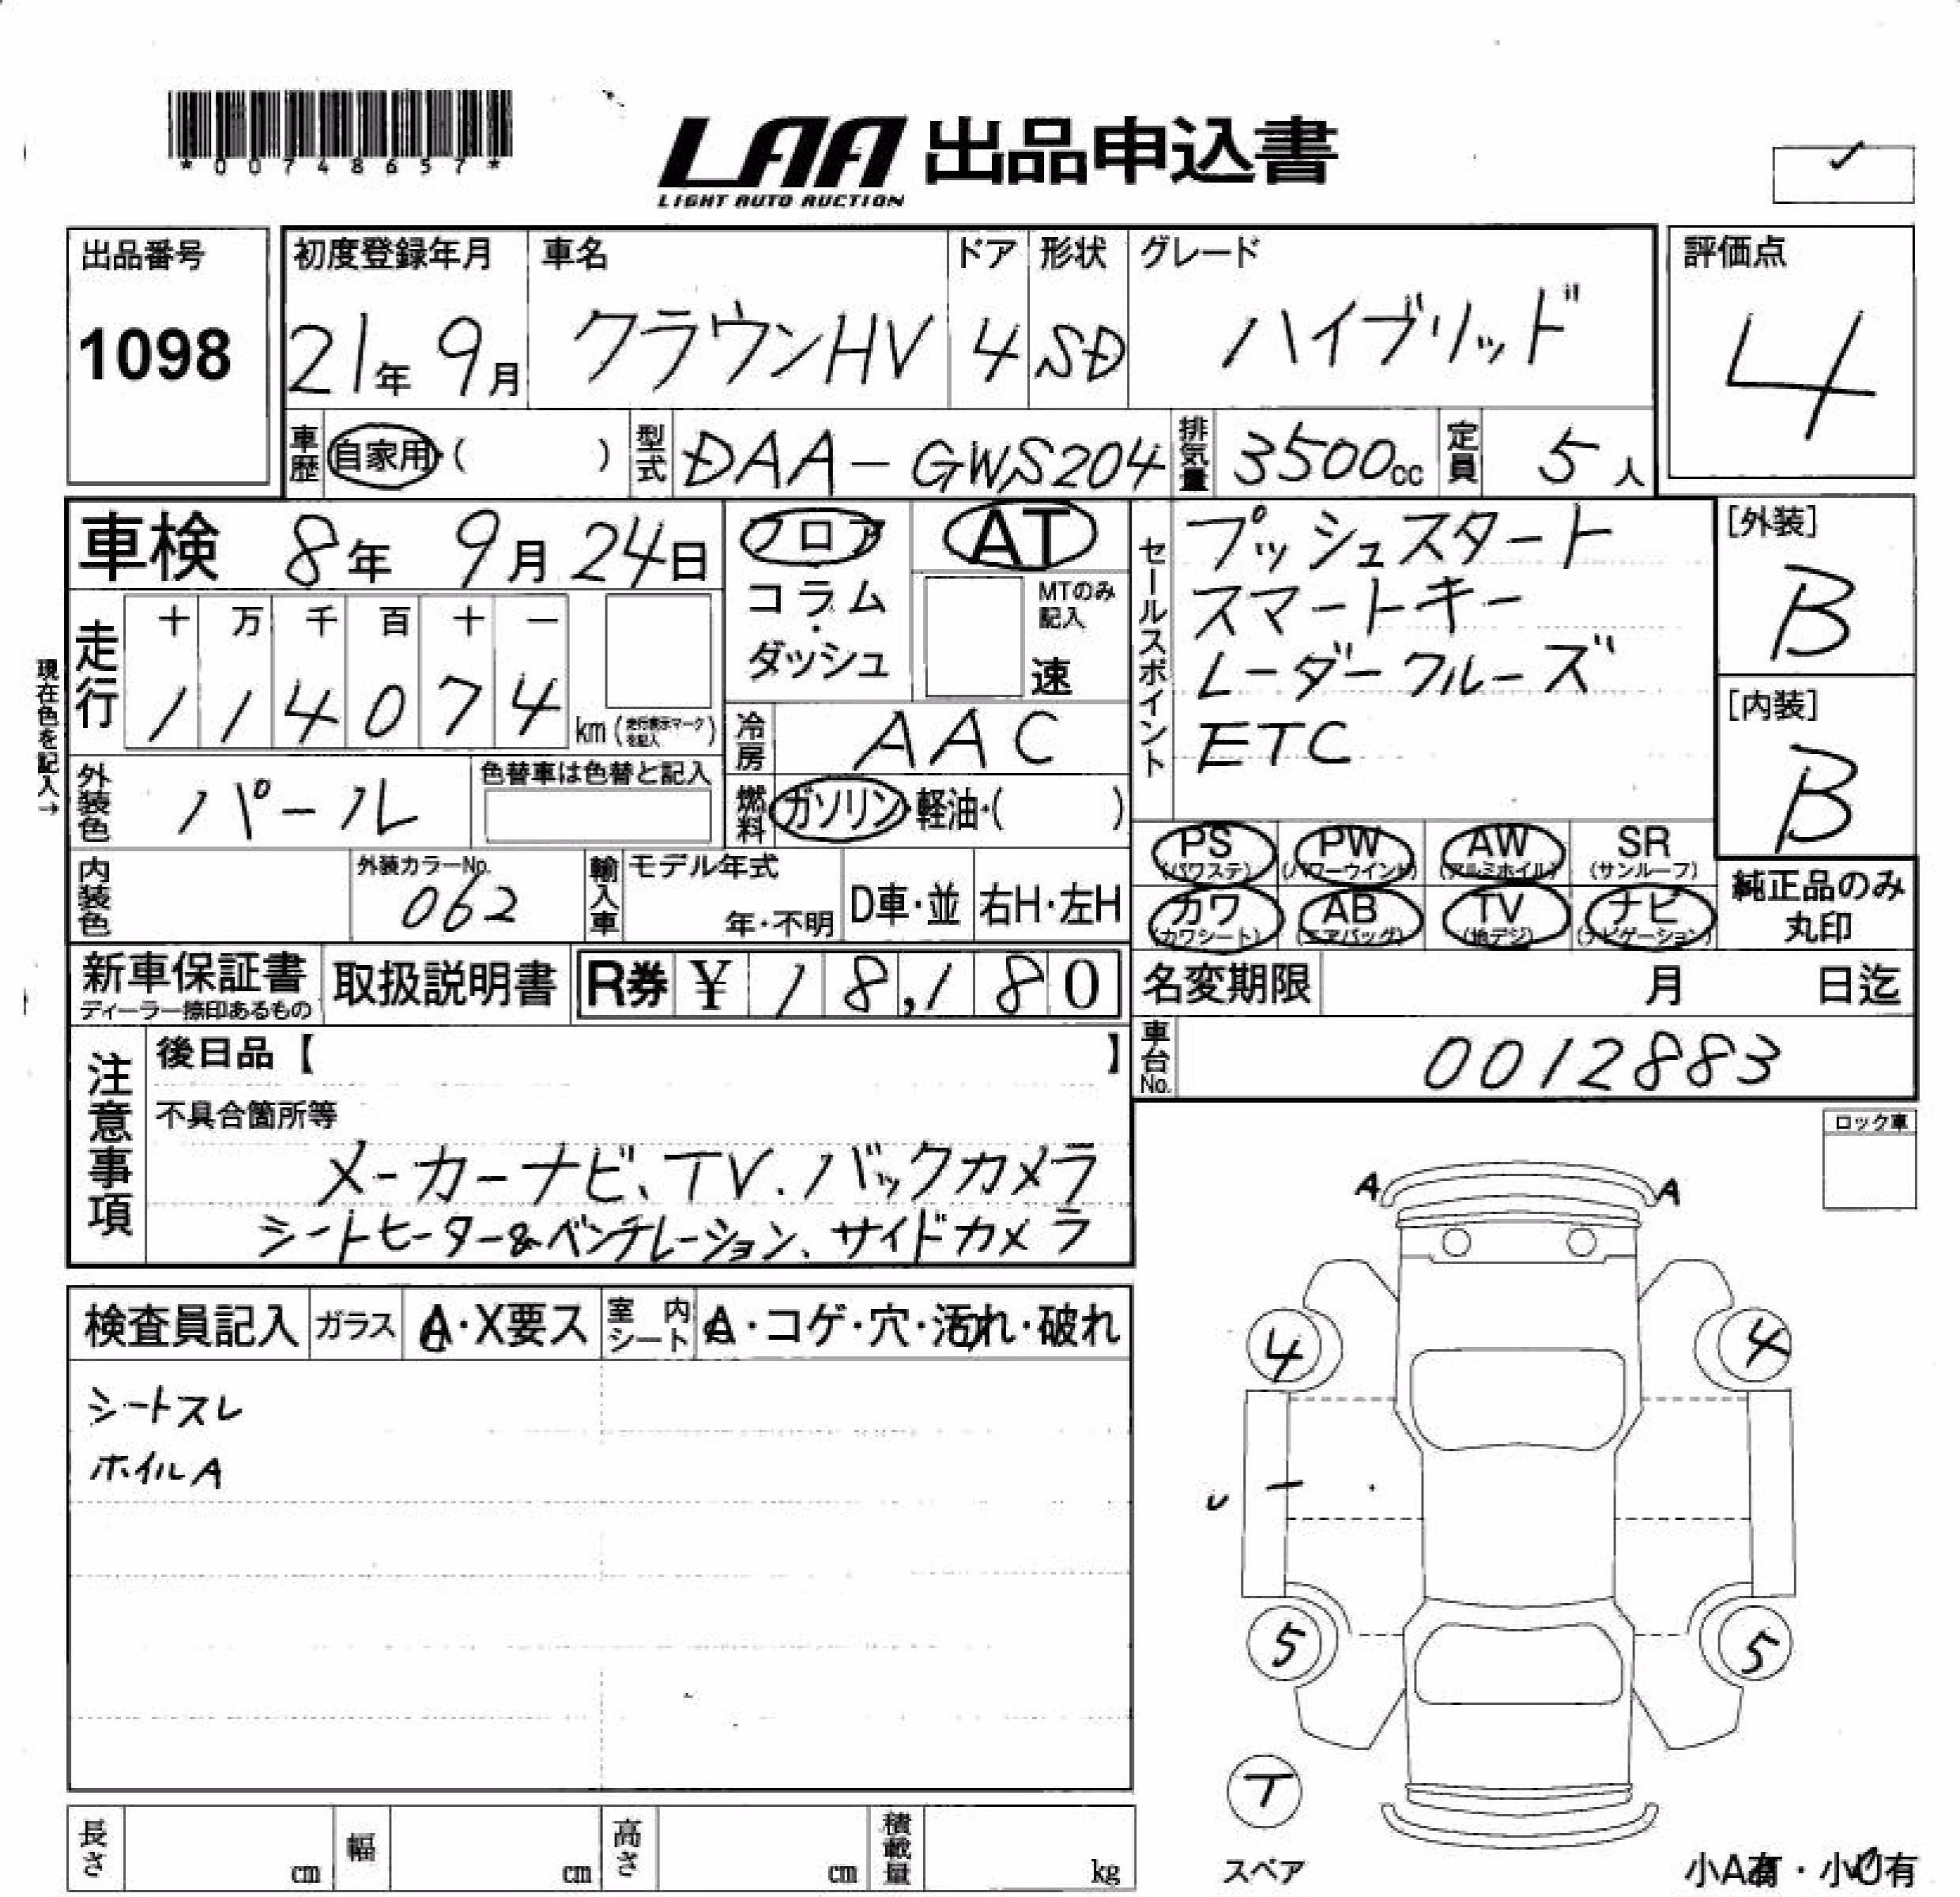 *00748657*
LAA 出品申込書
LIGHT AUTO AUCTION
出品番号
1098
初度登録年月
21年 9月
車名
クラウンHV
ドア
4
形状
SD
グレード
ハイブリッド
評価点
4
車歴 自家用・( )
型式 DAA-GWS204
排気量 3500cc
定員 5人
車検 8年 9月 24日
フロア
コラム
・
ダッシュ
AT
MTのみ記入
速
セールスポイント
プッシュスタート
スマートキー
レーダークルーズ
ETC
[外装]
B
[内装]
B
現在色を記入→
走行
十 万 千 百 十 一
1 1 4 0 7 4 km (走行表示マークを記入)
冷房 AAC
外装色 パール
色替車は色替と記入
燃料 ガソリン・軽油・( )
PS (パワステ)
PW (パワーウインド)
AW (アルミホイル)
SR (サンルーフ)
カワ (カワシート)
AB (エアバッグ)
TV (地デジ)
ナビ (ナビゲーション)
純正品のみ
丸印
内装色
外装カラーNo.
062
輸入車
モデル年式
年・不明
D車・並
右H・左H
新車保証書
ディーラー捺印あるもの
取扱説明書
R券 ¥ 18,180
名変期限 月 日迄
車台No. 0012883
注意事項
後日品【 】
不具合箇所等
メーカーナビ、TV、バックカメラ
シートヒーター&ベンチレーション、サイドカメラ
ロック車
A A
検査員記入
ガラス A・X要ス
室内シート A・コゲ・穴・汚れ・破れ
シートスレ
ホイルA
4 4
5 5
T
スペア
長さ cm
幅 cm
高さ cm
積載量 kg
小A有・小U有